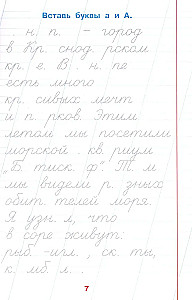 Вставь буквы а и А.
. н. п. - город
в Кр. снод. рском
кр. е. В . н. пе
есть много
кр. сивых мечт
и п. рков. Этим
летом мы посетили
морской . кв. риум
„Б. тиск. ф". Т. м
мы видели р. зных
обит. телей моря.
Я узн. л, что
в море живут:
рыб. -игл. , ск. ты,
к. мб. л. .
7